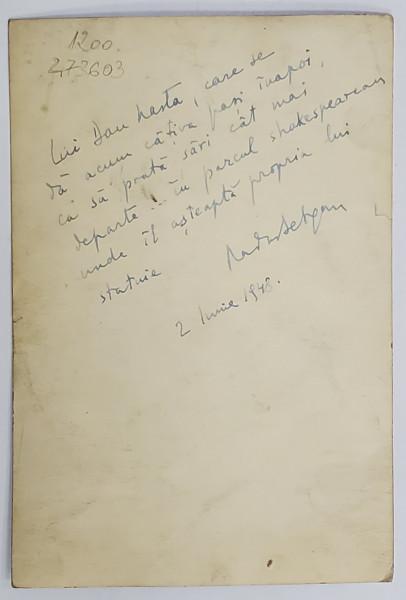 1200.
273603
Lui Dan Nasta, care se
dă acum câțiva pași înapoi,
ca să poată sări cât mai
departe .. în parcul shakespearean
unde îl așteaptă propria lui
statuie
Radu Beligan
2 Iunie 1948.